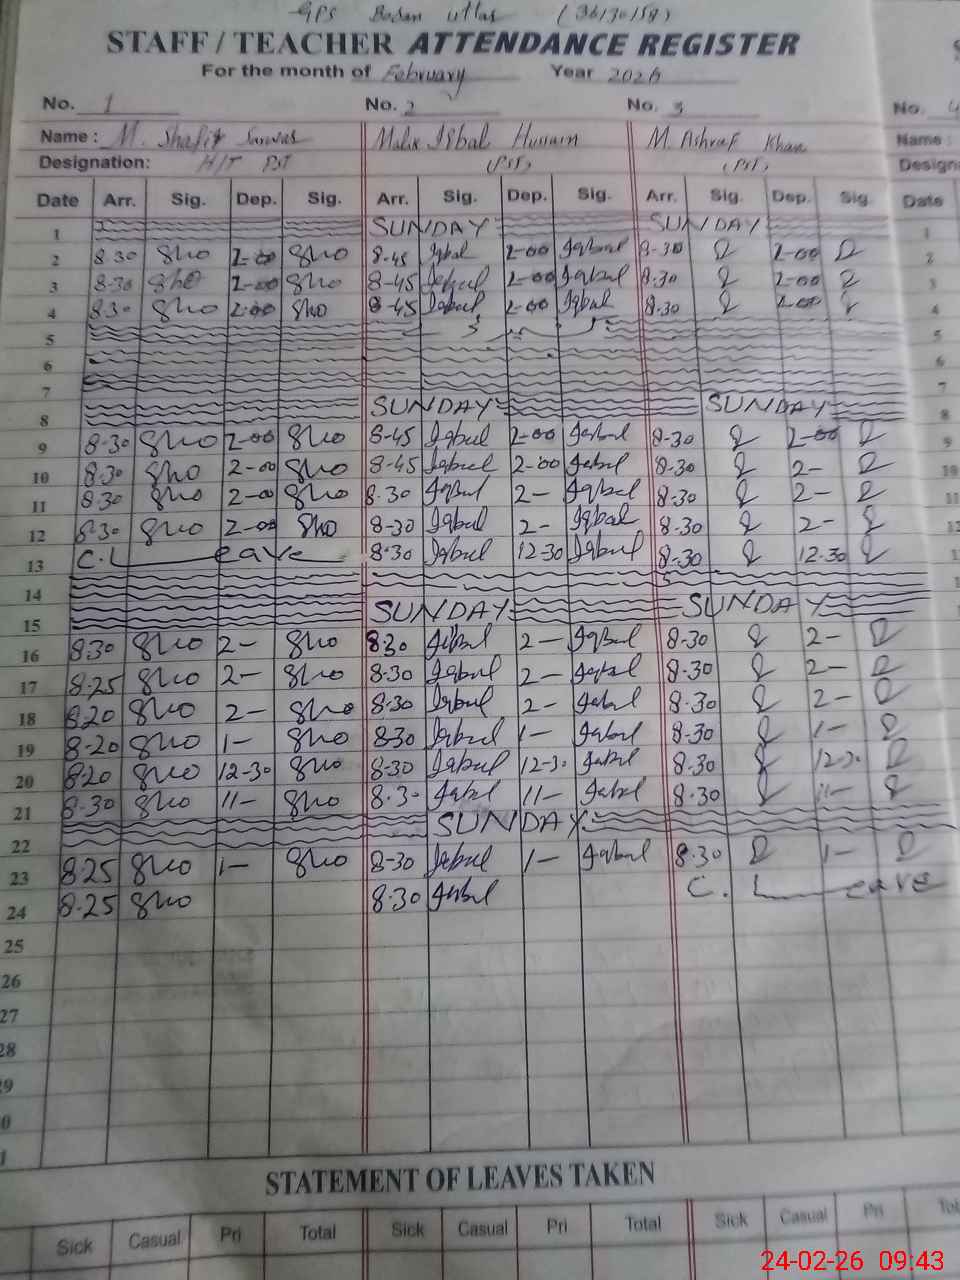 GPS Bodan uttar (36130158)
STAFF / TEACHER ATTENDANCE REGISTER
For the month of February Year 2026
No. 1 No. 2 No. 3 No. 4
Name: M. Shafiq Sarwar Malik Iqbal Hussain M. Ashraf Khan Name:
Designation: H/T PST (PST) (PST) Design
Date Arr. Sig. Dep. Sig. Arr. Sig. Dep. Sig. Arr. Sig. Dep. Sig. Date
1 SUNDAY SUNDAY 1
2 8-30 Sho 2-00 Sho 8-45 Iqbal 2-00 Iqbal 8-30 2-00 2
3 8-30 Sho 2-00 Sho 8-45 Iqbal 2-00 Iqbal 8-30 2-00 3
4 8.30 Sho 2-00 Sho 8-45 Iqbal 2-00 Iqbal 8-30 2-00 4
5 5
6 6
7 7
8 SUNDAY SUNDAY 8
9 8-30 Sho 2-00 Sho 8-45 Iqbal 2-00 Iqbal 8-30 2-00 9
10 8.30 Sho 2-00 Sho 8-45 Iqbal 2-00 Iqbal 8-30 2- 10
11 8.30 Sho 2-00 Sho 8.30 Iqbal 2- Iqbal 8-30 2- 11
12 8.30 Sho 2-00 Sho 8-30 Iqbal 2- Iqbal 8-30 2- 12
13 C. Leave 8.30 Iqbal 12-30 Iqbal 8-30 12-30 1
14
15 SUNDAY SUNDAY
16 8.30 Sho 2- Sho 8.30 Iqbal 2- Iqbal 8-30 2-
17 8.25 Sho 2- Sho 8-30 Iqbal 2- Iqbal 8.30 2-
18 8.20 Sho 2- Sho 8-30 Iqbal 2- Iqbal 8.30 2-
19 8-20 Sho 1- Sho 8-30 Iqbal 1- Iqbal 8-30 1-
20 8.20 Sho 12-30 Sho 8-30 Iqbal 12-30 Iqbal 8.30 12-30
21 8.30 Sho 11- Sho 8.30 Iqbal 11- Iqbal 8.30 11-
22 SUNDAY
23 8.25 Sho 1- Sho 8-30 Iqbal 1- Iqbal 8.30 1-
24 8.25 Sho 8.30 Iqbal C. Leave
25
26
27
28
29
0
1
STATEMENT OF LEAVES TAKEN
Sick Casual Pri Total Sick Casual Pri Total Sick Casual Pri Tot
24-02-26 09:43